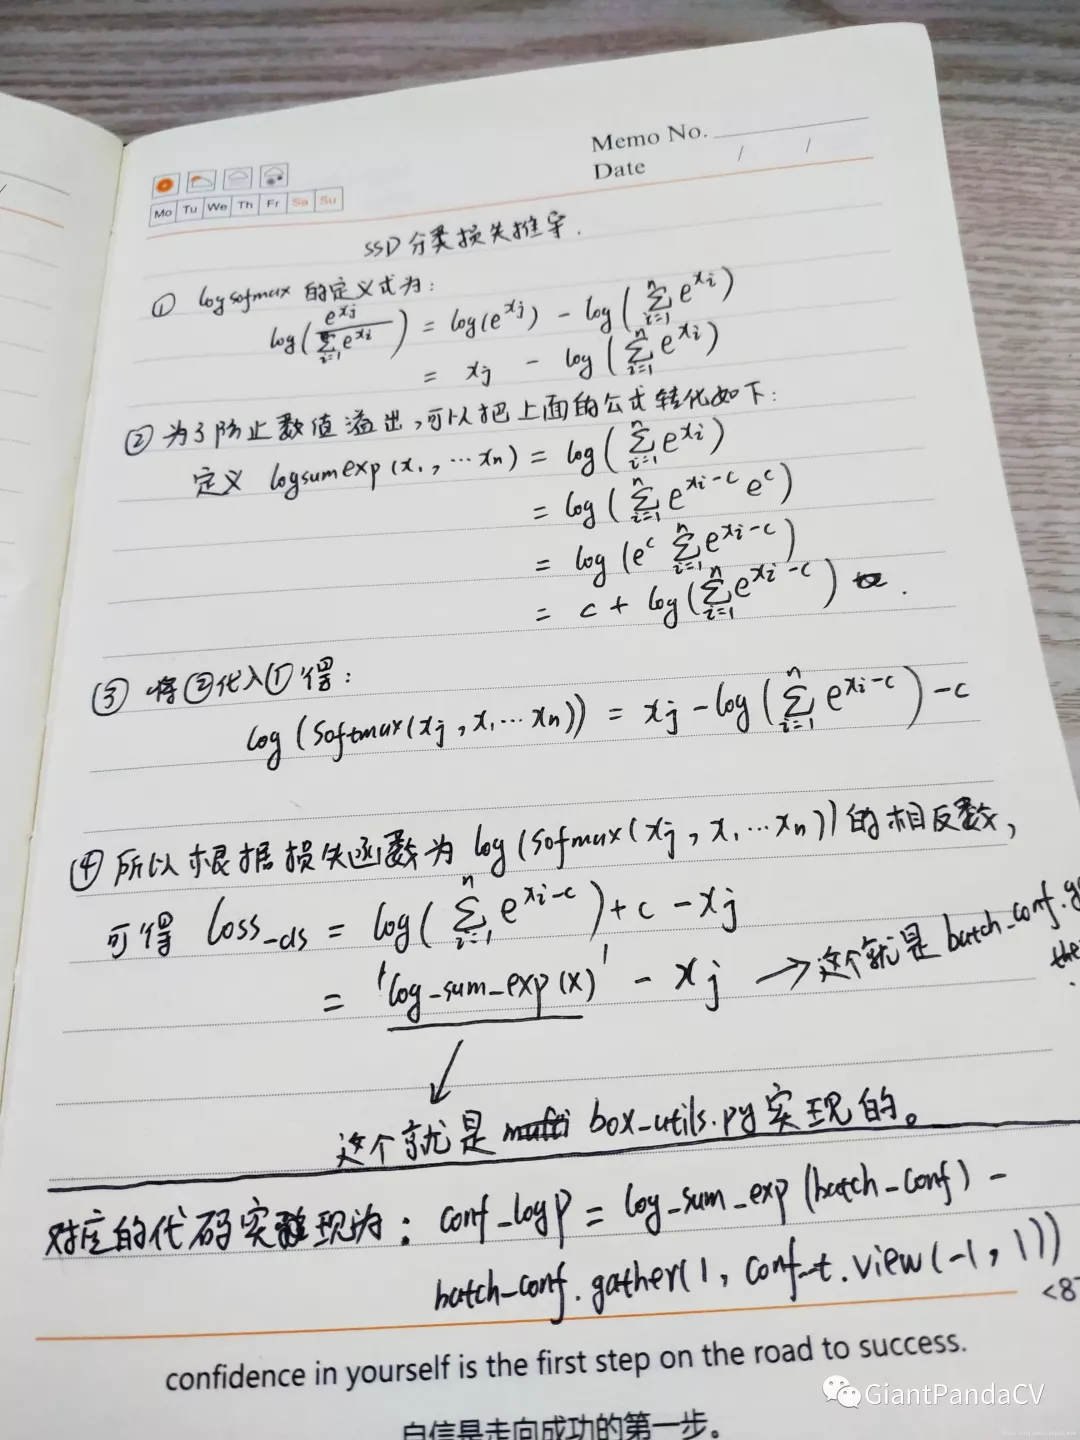 Memo No.
Date / /
Mo Tu We Th Fr Sa Su
SSD分类损失推导.
① logsofmax 的定义式为:
log(e^{xj} / Σ_{i=1} e^{xi}) = log(e^{xj}) - log(Σ_{i=1}^{n} e^{xi})
= xj - log(Σ_{i=1}^{n} e^{xi})
② 为了防止数值溢出,可以把上面的公式转化如下:
定义 logsumexp(x1, ... xn) = log(Σ_{i=1}^{n} e^{xi})
= log(Σ_{i=1}^{n} e^{xi-c} e^{c})
= log(e^{c} Σ_{i=1}^{n} e^{xi-c})
= c + log(Σ_{i=1}^{n} e^{xi-c}) .
③ 将②代入①得:
log(Softmax(xj, x1 ... xn)) = xj - log(Σ_{i=1}^{n} e^{xi-c}) - c
④ 所以根据损失函数为 log(Sofmax(xj, x1 ... xn)) 的相反数,
可得 Loss_cls = log(Σ_{i=1}^{n} e^{xi-c}) + c - xj
= 'log_sum_exp(x)' - xj → 这个就是 batch_conf.ga
the
↓
这个就是 box_utils.py实现的。
对应的代码实现为: conf_logp = log_sum_exp(batch_conf) -
batch_conf.gather(1, conf_t.view(-1, 1))
<87
confidence in yourself is the first step on the road to success.
自信是走向成功的第一步。
GiantPandaCV